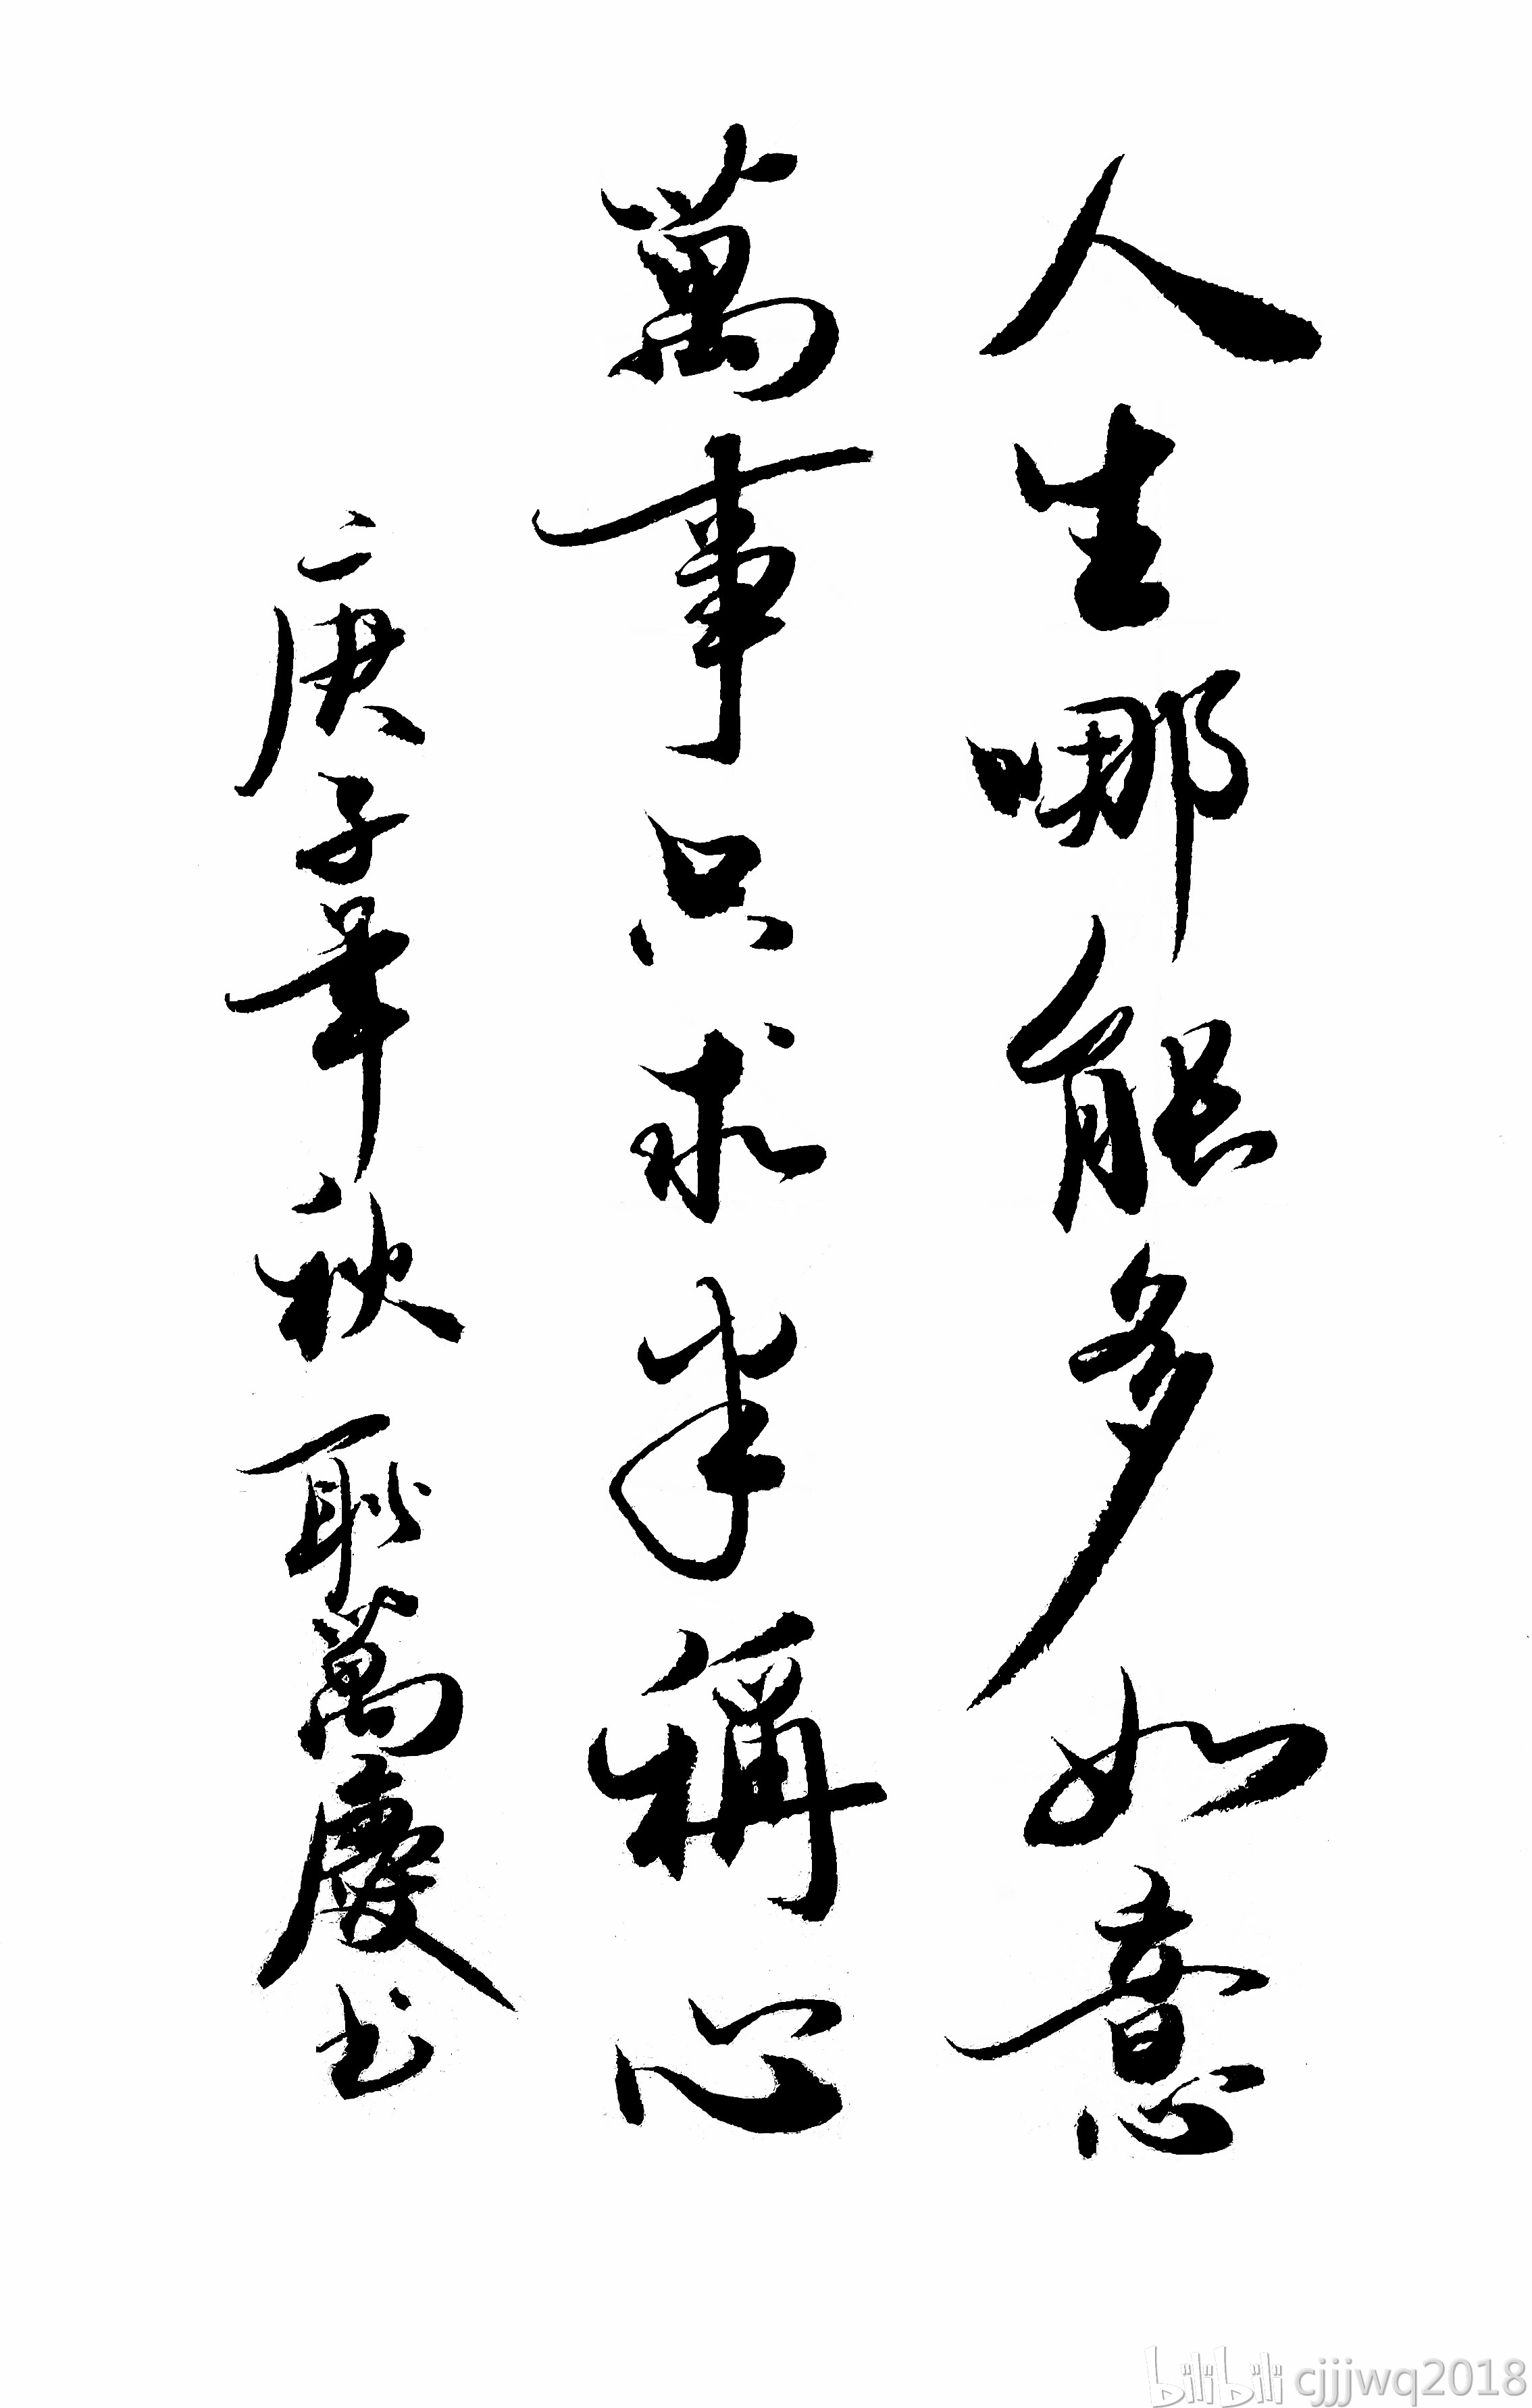 人生哪能多如意
萬事只求半稱心
二庚子年秋 耿萬慶书
bilibili cjjjwq2018